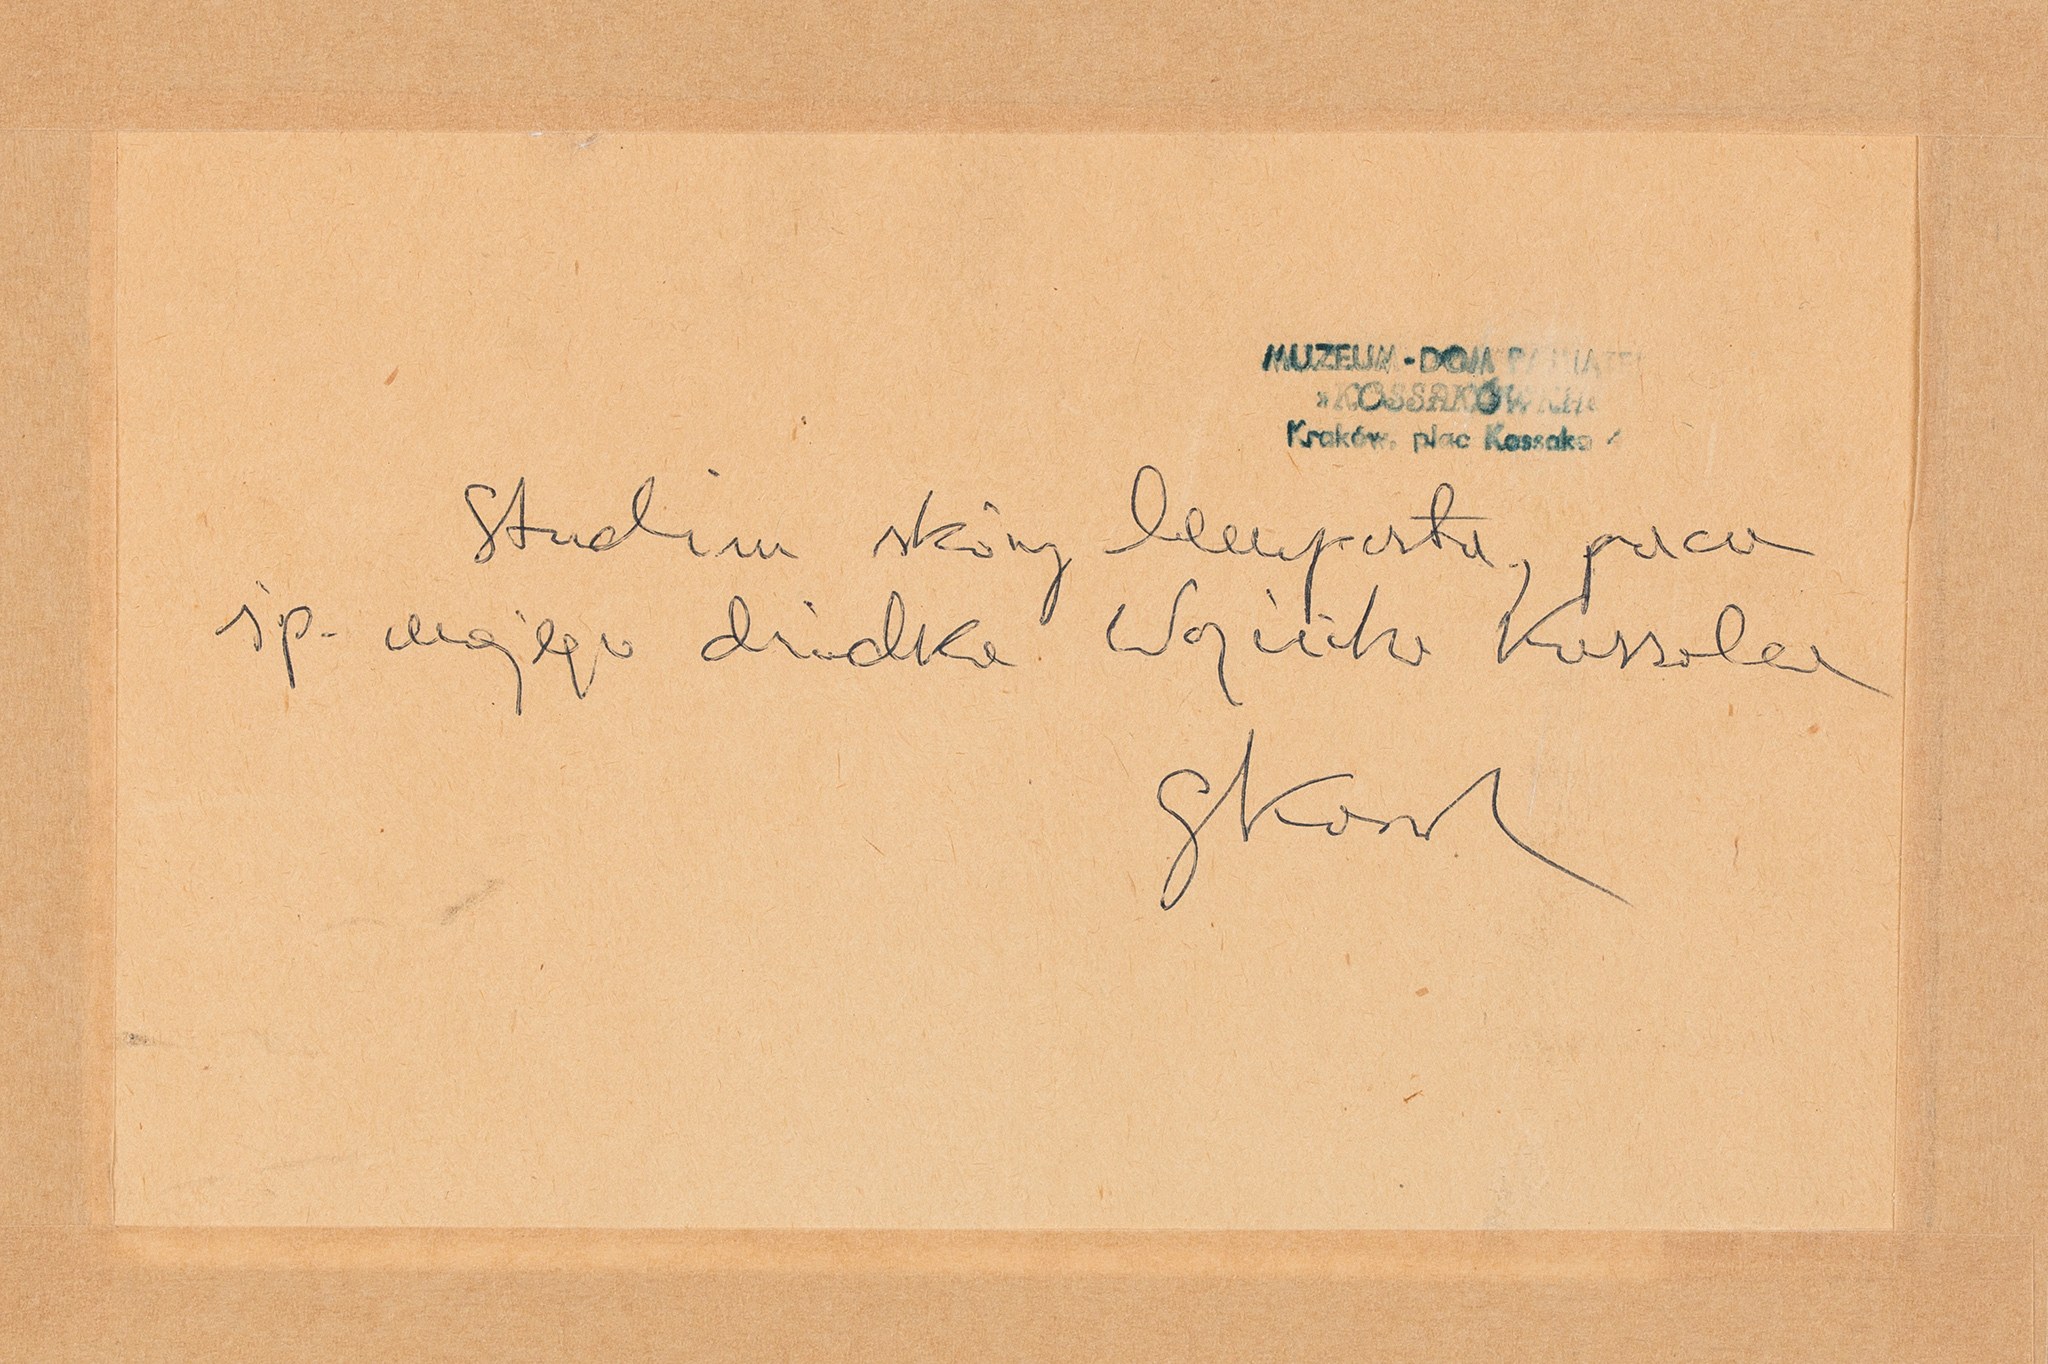 MUZEUM - DOM PAMIĄTEK
»KOSSAKÓWKA«
Kraków, plac Kossaka 4
Studium skóry lamparta, praca
śp. mojego dziadka Wojciecha Kossaka
GKossak